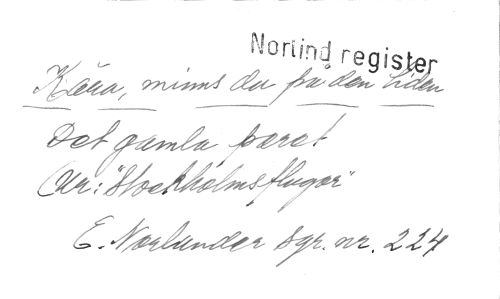 Norlind register
Kära, minns du på den tiden
Det gamla paret
Ur: "Stockholmsflugor"
E. Norlander sgr. nr. 224